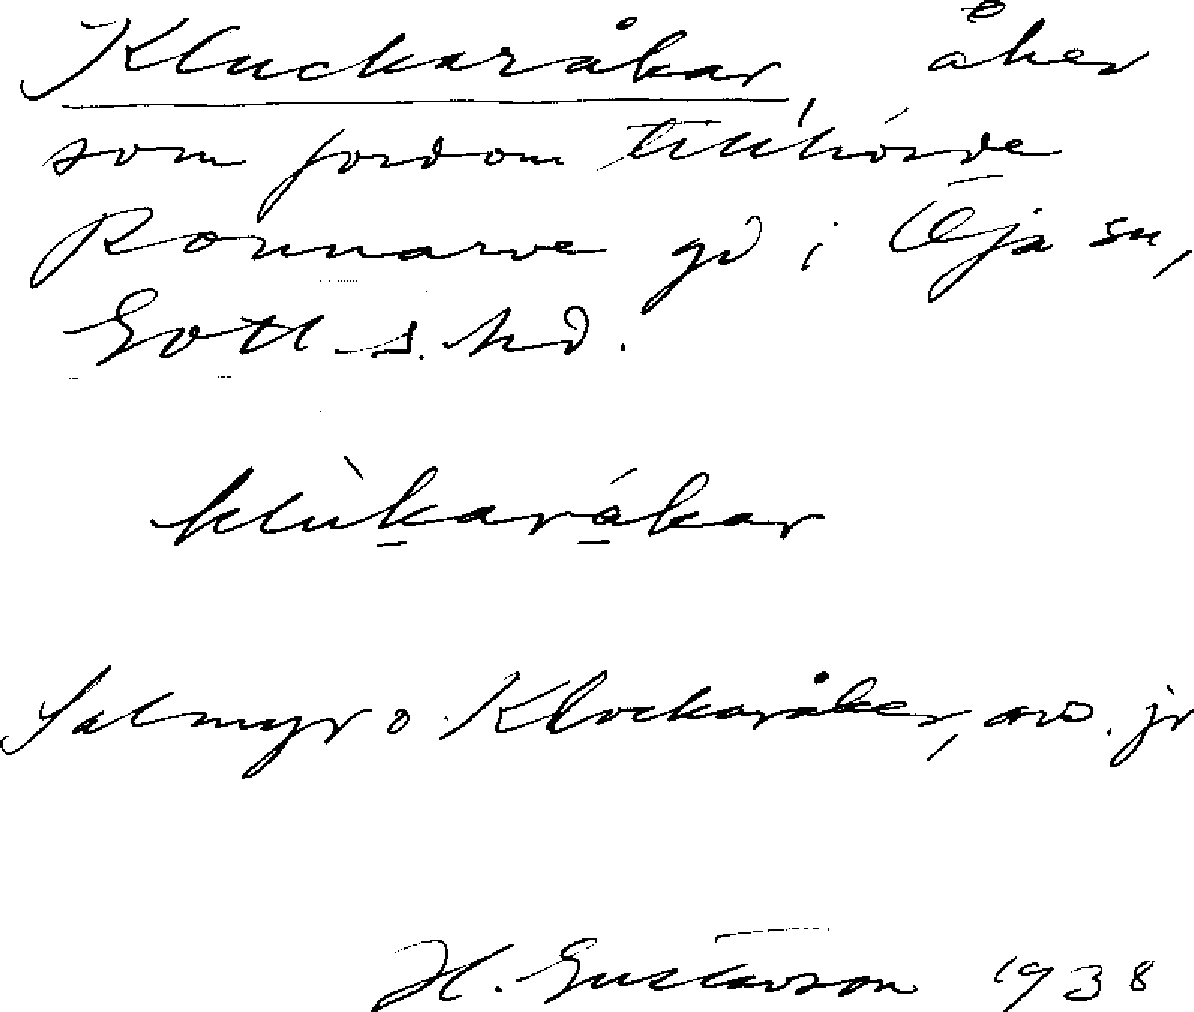 Kluckaråkar, åker
som fordom tillhörde
Ronnarve gd i Öja sn,
Gotl. s. hd.
klùkarákar
Salmyr o. Klockaråker, avs. jr
H. Gustavson 1938